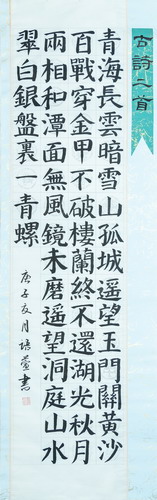 古詩二首
青海長雲暗雪山孤城遙望玉門關黃沙
百戰穿金甲不破樓蘭終不還湖光秋月
兩相和潭面無風鏡未磨遙望洞庭山水
翠白銀盤裏一青螺
庚子夏月培書